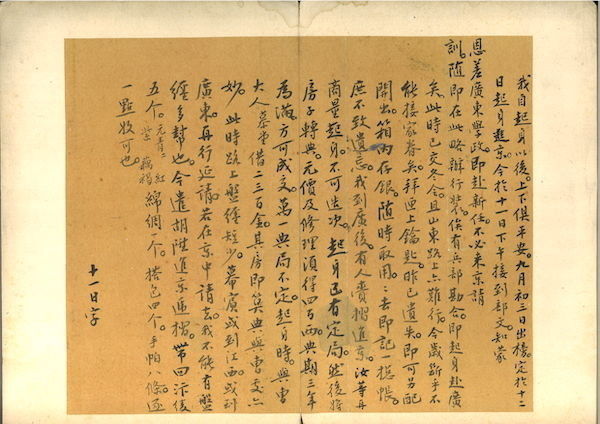 我自起身以後。上下俱平安。九月初三日出榜。定於十二
日起身赴京。今於十一日下午接到部文。知蒙
恩差廣東學政。即赴新任。不必來京請
訓。隨即在此略辦行裝。俟有兵部勘合。即起身赴廣
矣。此時已交冬令。且山東路上亦難行。今歲斷乎不
能接家眷矣。拜匣上鑰匙。昨已遺失。即可另配
開出。箱內存銀。隨時取用。〻去即記一總帳。
庶不致遺忘。我到廣後。有人賫摺進京。汝等再
商量起身。不可造次。起身已有定局。然後將
房子轉典。元價及修理須得四百兩。典期三年
為滿。方可成交。萬一典局不定。起身時。與曹
大人慕堂借二三百金。其房即算典與曹處亦
妙。此時路上盤纏短少。幕賓或到江西。或到
廣東。再行延請。若在京中請去。我不能有盤
纏多幫也。今遣胡陞進京遞摺。帶回汴綾
五个。元青二 紅 紫 藕褐 綿綢一个。搭包四个。手帕八條。逐
一點收可也。
十一日字